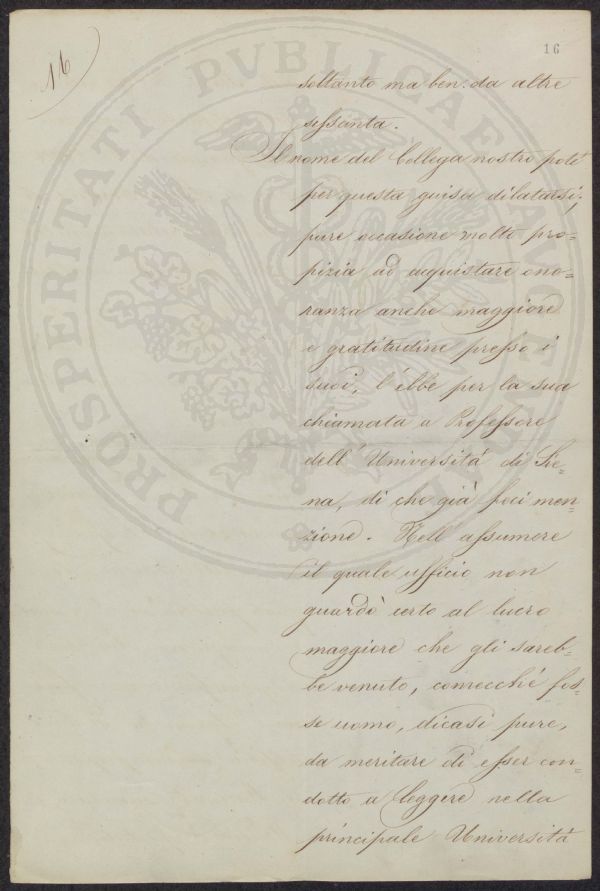 16
16
soltanto ma ben: da altre
sessanta.
Il nome del Collega nostro potè
per questa guisa dilatarsi;
pure occasione molto pro=
pizia ad acquistare ono=
ranza anche maggiore
e gratitudine presso i
suoi, l'ebbe per la sua
chiamata a Professore
dell'Università di Sie=
na, di che già feci men=
zione. Nell'assumere
il quale ufficio non
guardò certo al lucro
maggiore che gli sareb=
be venuto, comecchè fos=
se uomo, dicasi pure,
da meritare di esser con=
dotto a leggere nella
principale Università
PROSPERITATI PUBLICAE